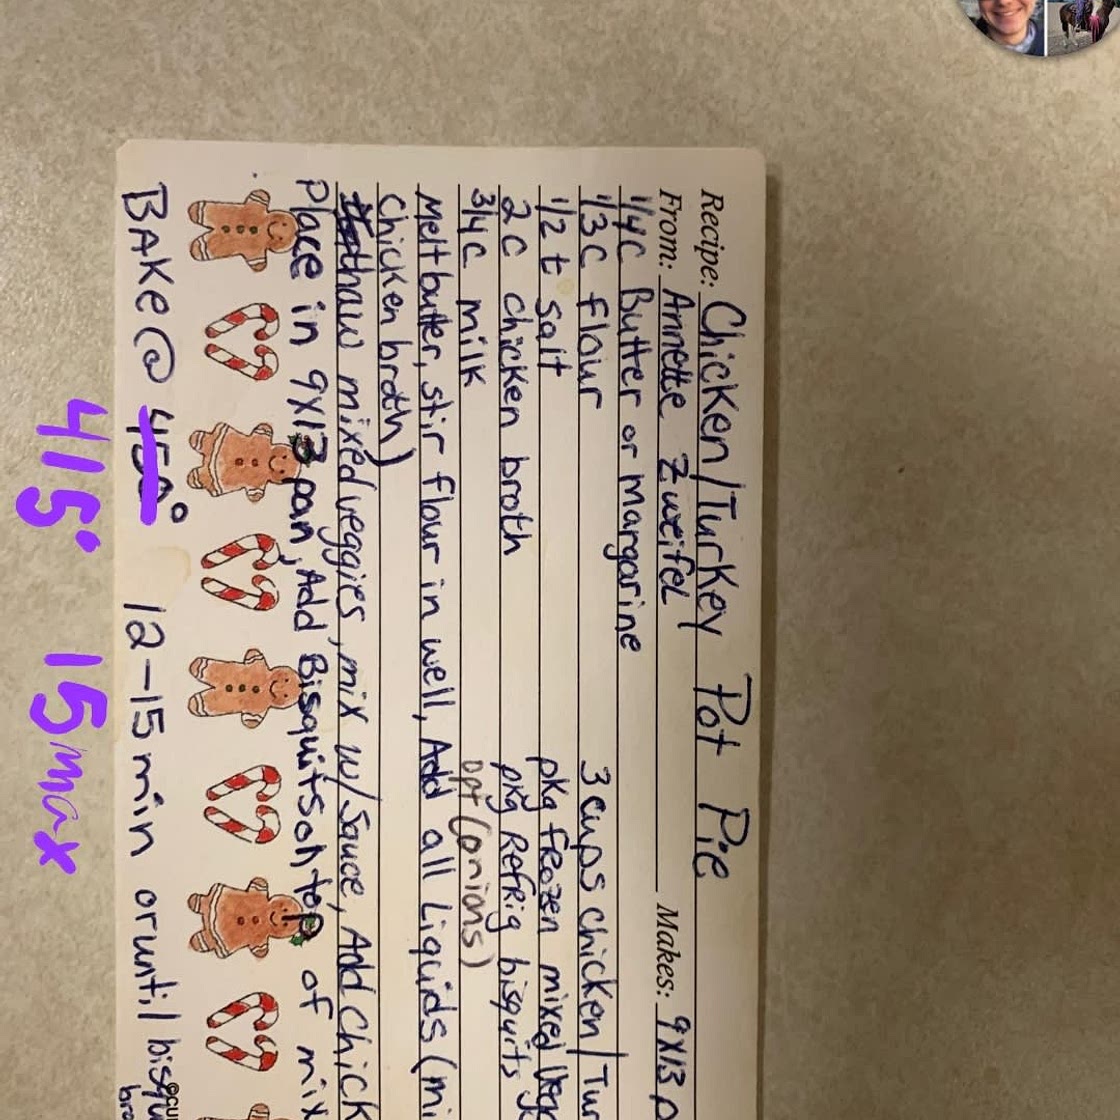 Recipe: Chicken/Turkey Pot Pie
From: Annette Zweifel Makes: 9x13 p
1/4 c Butter or margarine
1/3 c flour 3 cups chicken/Tur
1/2 t salt pkg frozen mixed Vegg
2 c chicken broth pkg Refrig bisquits
3/4 c milk opt (onions)
Melt butter, stir flour in well, Add all Liquids (mi
chicken broth)
thaw mixed veggies, mix w/ Sauce, Add Chick
Place in 9x13 pan, Add Bisquits on top of mix
BAKE @ 450° 12-15 min or until bisqu
bro
415° 15 max